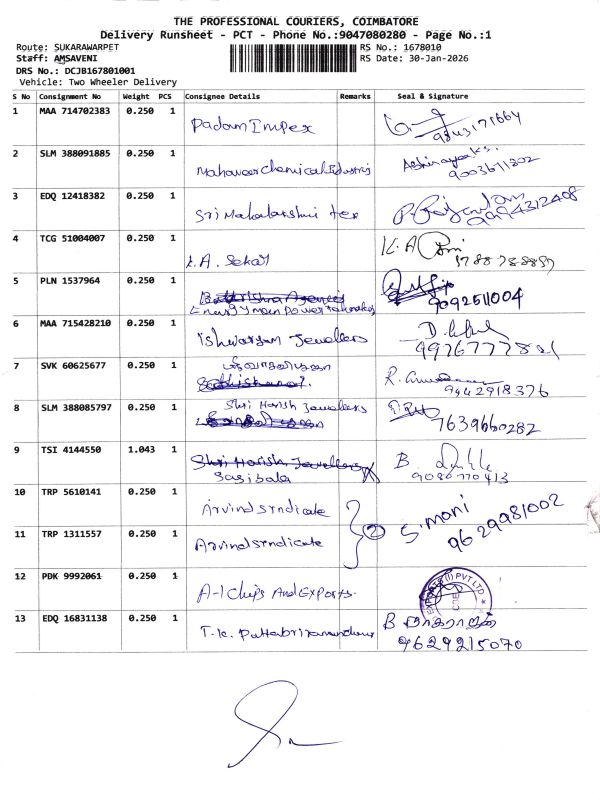 THE PROFESSIONAL COURIERS, COIMBATORE
Delivery Runsheet - PCT - Phone No.:9047080280 - Page No.:1
Route: SUKARAWARPET RS No.: 1678010
Staff: AMSAVENI RS Date: 30-Jan-2026
DRS No.: DCJB167801001
Vehicle: Two Wheeler Delivery
S No Consignment No Weight PCS Consignee Details Remarks Seal & Signature
1 MAA 714702383 0.250 1 Padam Impex 9843171664
2 SLM 388091885 0.250 1 Mahaveer Chemical Industris 9003671302
3 EDQ 12418382 0.250 1 Sri Mahalakshmi tex 9994312408
4 TCG 51004007 0.250 1 K.A. Sekar K. A
5 PLN 1537964 0.250 1 Energy men power 9092511004
6 MAA 715428210 0.250 1 Ishwaryam Jewellers
7 SVK 60625677 0.250 1 R. 9442918376
8 SLM 388085797 0.250 1 Shri Harish Jewellers 7639660282
9 TSI 4144550 1.043 1 Shri Harish Jewellers B.
Sasibala 9080770413
10 TRP 5610141 0.250 1 Arvind Syndicate
11 TRP 1311557 0.250 1 Arvind Syndicate 2 S. Moni 9629981002
12 PDK 9992061 0.250 1 A-1 Chips And Exports. EXPORTS (I) PVT LTD
13 EDQ 16831138 0.250 1 T.K. B
9629215070